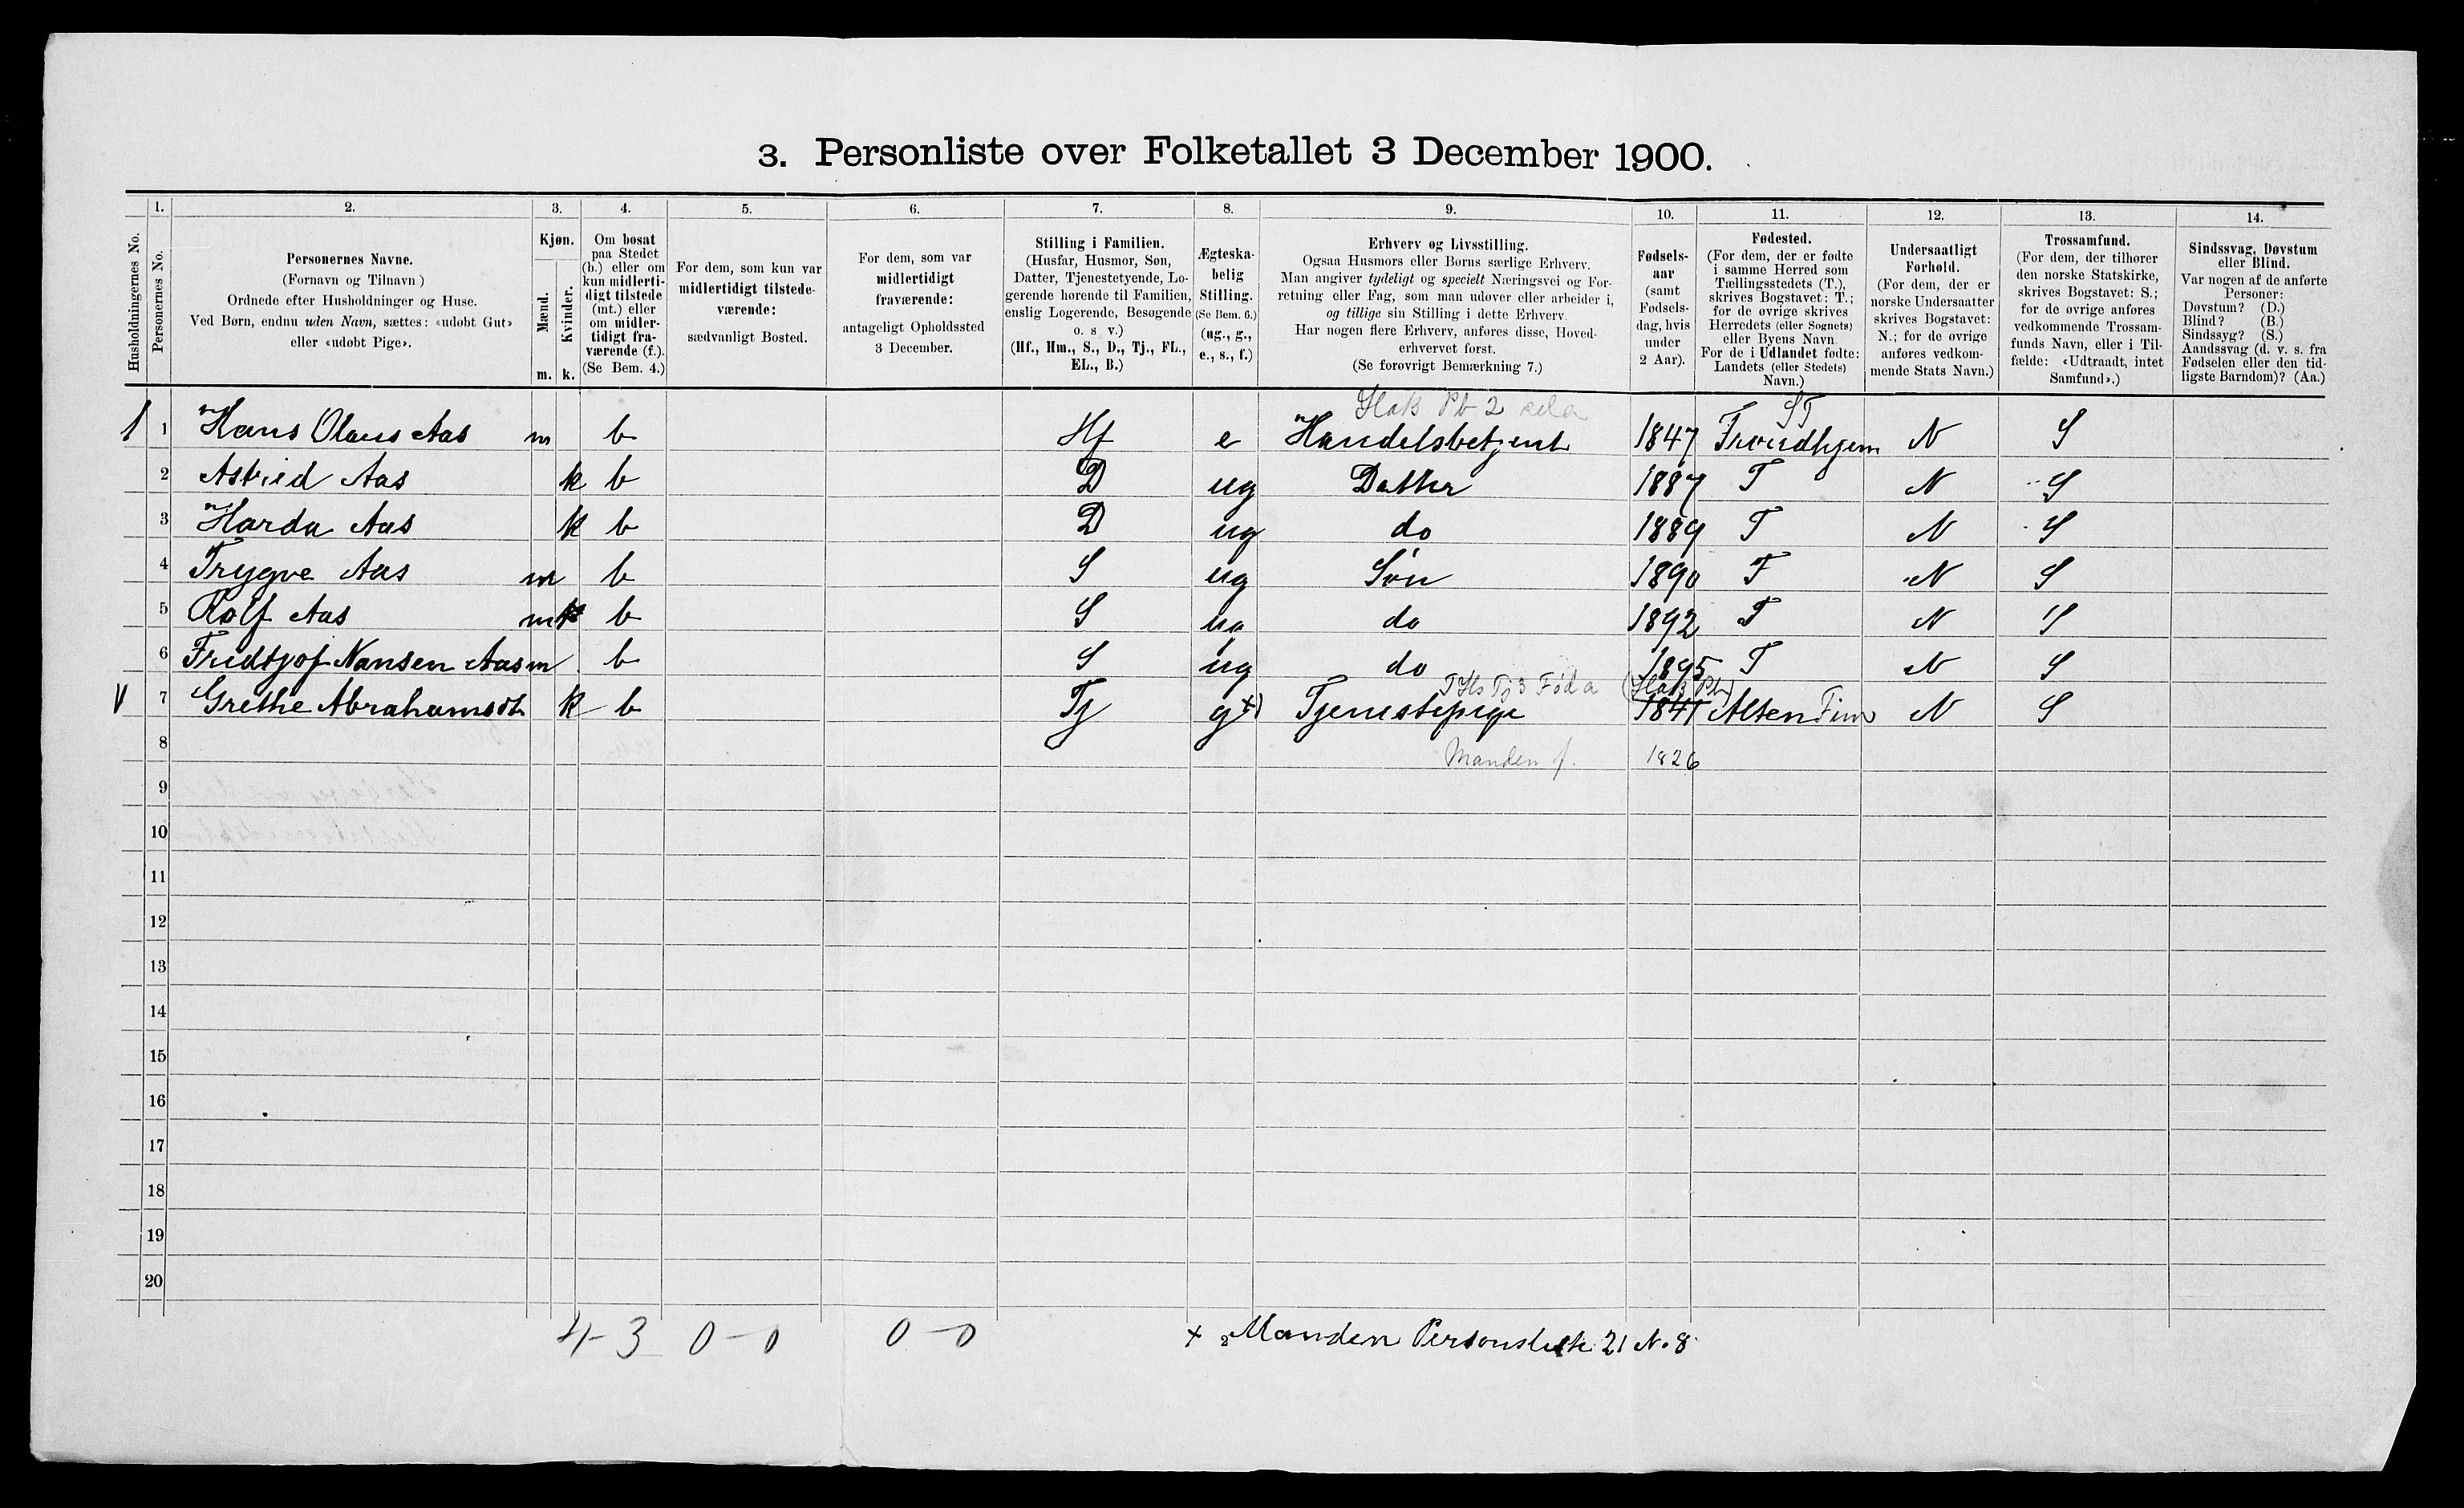 3. Personliste over Folketallet 3 December 1900.
Husholdningernes No.
1.
Personernes No.
2.
Personernes Navne.
(Fornavn og Tilnavn)
Ordnede efter Husholdninger og Huse.
Ved Børn, endnu uden Navn, sættes: «udøbt Gut»
eller «udøbt Pige».
3.
Kjøn.
Mænd.
Kvinder.
m. k.
4.
Om bosat
paa Stedet
(b.) eller om
kun midlerti-
digt tilstede
(mt.) eller
om midler-
tidigt fra-
værende (f.).
(Se Bem. 4.)
5.
For dem, som kun var
midlertidigt tilstede-
værende:
sædvanligt Bosted.
6.
For dem, som var
midlertidigt
fraværende:
antageligt Opholdssted
3 December.
7.
Stilling i Familien.
(Husfar, Husmor, Søn,
Datter, Tjenestetyende, Lo-
gerende hørende til Familien,
enslig Logerende, Besøgende
o. s v.)
(Hf., Hm., S., D., Tj., FL.,
EL., B.)
8.
Ægteska-
belig
Stilling.
(Se Bem. 6.)
(ug., g.,
e., s., f.)
9.
Erhverv og Livsstilling.
Ogsaa Husmors eller Børns særlige Erhverv.
Man angiver tydeligt og specielt Næringsvei og For-
retning eller Fag, som man udøver eller arbeider i,
og tillige sin Stilling i dette Erhverv.
Har nogen flere Erhverv, anføres disse, Hoved-
erhvervet først.
(Se forøvrigt Bemærkning 7.)
10.
Fødsels-
aar
(samt
Fødsels-
dag, hvis
under
2 Aar).
11.
Fødested.
(For dem, der er fødte
i samme Herred som
Tællingsstedets (T.),
skrives Bogstavet: T.;
for de øvrige skrives
Herredets (eller Sognets)
eller Byens Navn.
For de i Udlandet fødte:
Landets (eller Stedets)
Navn.)
12.
Undersaatligt
Forhold.
(For dem, der er
norske Undersaatter
skrives Bogstavet:
N.; for de øvrige
anføres vedkom-
mende Stats Navn.)
13.
Trossamfund.
(For dem, der tilhører
den norske Statskirke,
skrives Bogstavet: S.;
for de øvrige anføres
vedkommende Trossam-
funds Navn, eller i Til-
fælde: «Udtraadt, intet
Samfund».)
14.
Sindssvag, Døvstum
eller Blind.
Var nogen af de anførte
Personer:
Døvstum? (D.)
Blind? (B.)
Sindssyg? (S.)
Aandssvag (d. v. s. fra
Fødselen eller den tid-
ligste Barndom)? (Aa.)
Pb 2 ST
1 1 Hans Olaus Aas m b Hf e Handelsbetjent 1847 Trondhjem N S
2 Astrid Aas k b D ug Datter 1887 T N S
3 Harda Aas k b D ug do 1889 T N S
4 Trygve Aas m b S ug Søn 1890 T N S
5 Rolf Aas m b S ug do 1892 T N S
6 Fridtjof Nansen Aas m b S ug do 1895 T N S
Tj 3 Fød a
7 Grethe Abrahamsdt k b Tj g +) Tjenestepige 1841 Alten Fin N S
8 Manden f. 1826
9
10
11
12
13
14
15
16
17
18
19
20
4-3 0-0 0-0 + Manden Personsliste 21 No 8